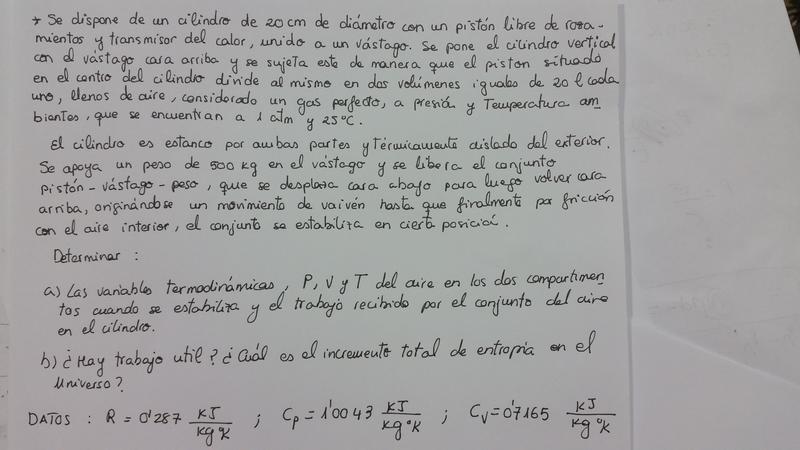 * Se dispone de un cilindro de 20 cm de diámetro con un pistón libre de roza-
mientos y transmisor del calor, unido a un vástago. Se pone el cilindro vertical
con el vástago cara arriba y se sujeta este de manera que el piston situado
en el centro del cilindro divide al mismo en dos volúmenes iguales de 20 l cada
uno, llenos de aire, considerado un gas perfecto, a presión y Temperatura am
bientes, que se encuentran a 1 atm y 25°C.
El cilindro es estanco por ambas partes y térmicamente aislado del exterior.
Se apoya un peso de 500 kg en el vástago y se libera el conjunto
pistón-vástago-peso, que se desplaza cara abajo para luego volver cara
arriba, originándose un movimiento de vaivén hasta que finalmente por fricción
con el aire interior, el conjunto se estabiliza en cierta posición.
Determinar :
a) Las variables termodinámicas, P, V y T del aire en los dos compartimen
tos cuando se estabiliza y el trabajo recibido por el conjunto del aire
en el cilindro.
b) ¿Hay trabajo util? ¿Cuál es el incremento total de entropía en el
Universo?
DATOS : R = 0'287 KJ/Kg°K ; Cp = 1'0043 KJ/Kg°K ; Cv = 0'7165 KJ/Kg°K